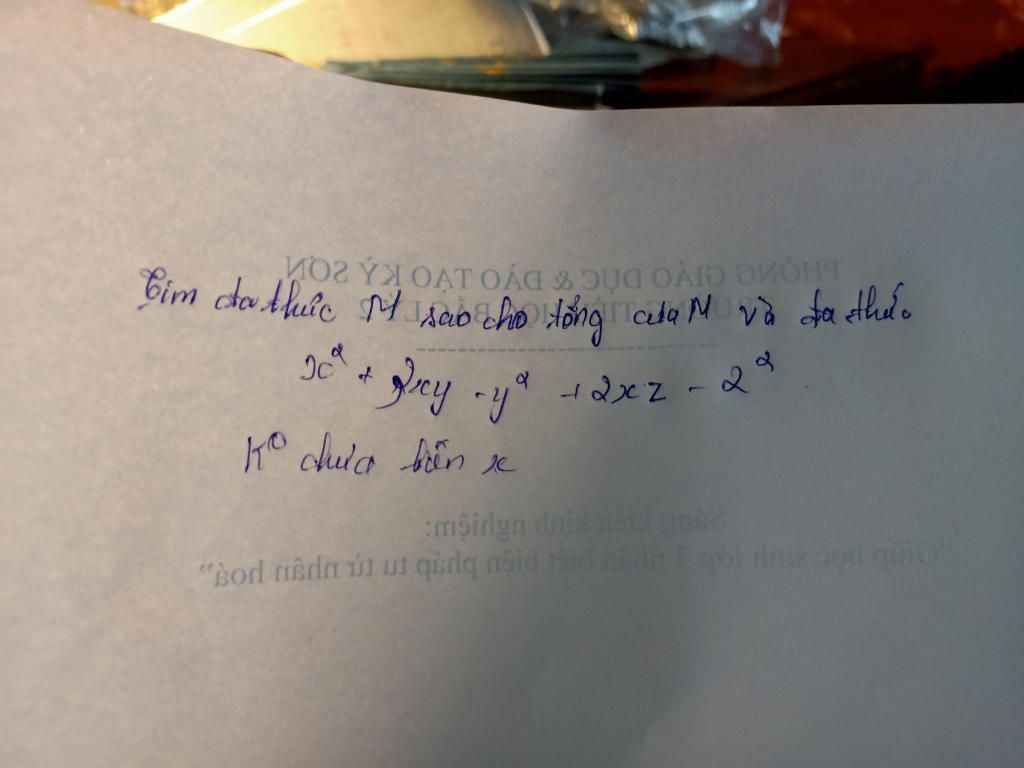 PHÒNG GIÁO DỤC & ĐÀO TẠO KỲ SƠN
Tìm đa thức M sao cho tổng của M và đa thức
x² + 2xy - y² + 2xz - 2²
K⁰ chứa biến x
Sáng kiến kinh nghiệm:
"Giúp học sinh lớp 3 nhận biết biện pháp tu từ nhân hoá"